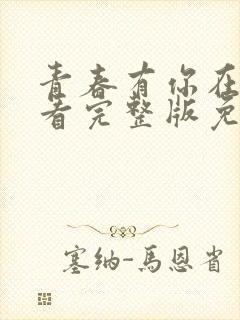 青春有你在
看完整版免
塞纳-馬恩省